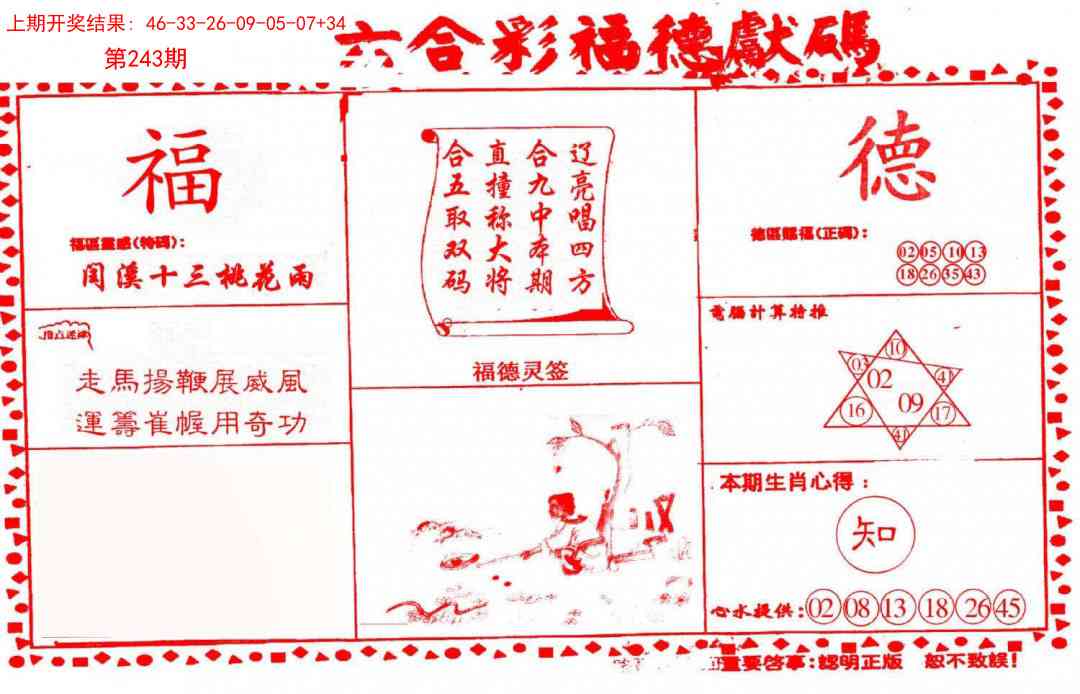 上期开奖结果: 46-33-26-09-05-07+34
第243期
六合彩福德獻碼
福
福區靈感(特碼):
閏溪十三桃花雨
走馬揚鞭展威風
運籌崔幄用奇功
辽亮唱四方
合九中本期
直撞称大将
合五取双码
福德灵签
德
德區賜福(正碼):
02 05 10 13
18 26 35 43
電腦計算特推
10
03 41
02
16 09 17
41
本期生肖心得:
知
心水提供: 02 08 13 18 26 45
重要啓事:認明正版 恕不致誤!